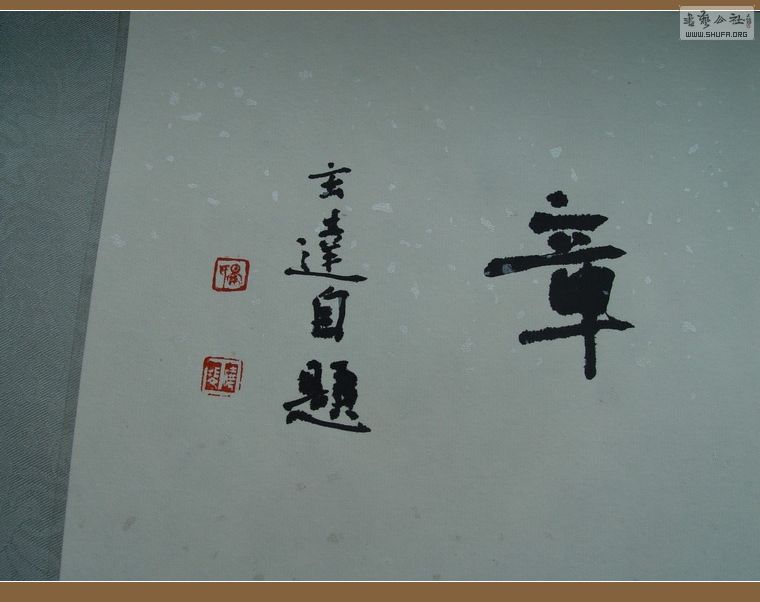 章
玄達自題
書藝公社
WWW.SHUFA.ORG